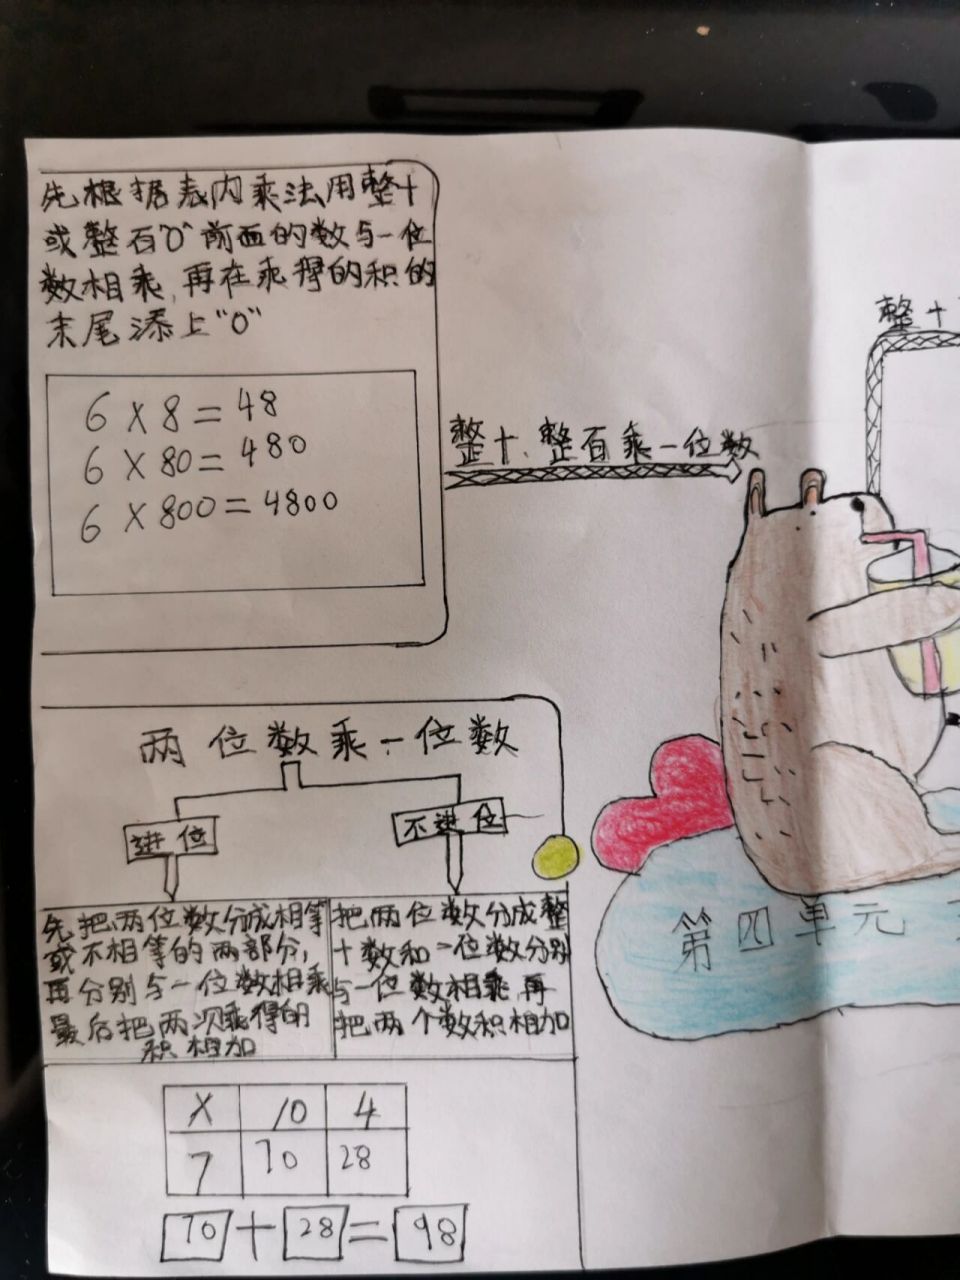 先根据表内乘法用整十
或整百"0"前面的数与一位
数相乘,再在乘得的积的
末尾添上"0"
6×8=48
6×80=480
6×800=4800
整十、整百乘一位数
整十
两位数乘一位数
进位
不进位
先把两位数分成相等
或不相等的两部分,
再分别与一位数相乘
最后把两次乘得的
积相加
把两位数分成整
十数和一位数分别
与一位数相乘,再
把两个数积相加
第四单元
× 10 4
7 70 28
70+28=98